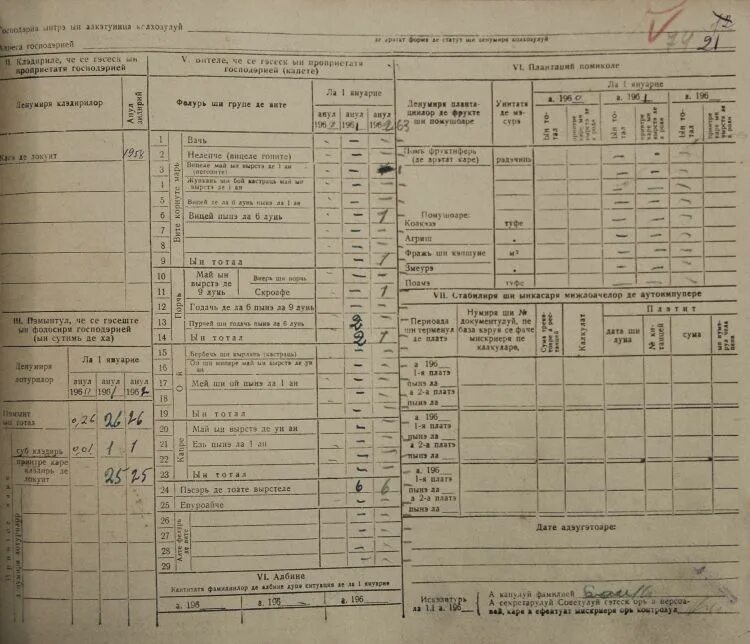 Господэрия ынтрэ ын алкэтуинца колхозулуй
де арэтат форма де статут ши денумиря колхозулуй
Адреса господэрией
21
II. Клэдириле, че се гэсеск ын проприетатя господэрией
Денумиря клэдирилор
Анул зыдирий
Каса де локуит 1958
III. Пэмынтул, че се гэсеште ын фолосиря господэрией
(ын сутимь де ха)
Денумиря лотурилор
Ла 1 януарие
анул анул анул
Пэмынт ын тотал 0,26 26 26
суб клэдирь 0,01 1 1
принтре каре клэдирь де локуит 25 25
V. Вителе, че се гэсеск ын проприетатя господэрией (капете)
Фелурь ши групе де вите
Ла 1 януарие
анул анул анул
Вите корнуте марь
1 Вачь
2 Нелепче (вицеле гоните)
3 Вицеле май ын вырстэ де 1 ан (негоните)
4 Жункань ши бой кастраць май ын вырстэ де 1 ан
5 Вицей де ла 6 лунь пынэ ла 1 ан
6 Вицей пынэ ла 6 лунь 1
7
8
9 Ын тотал 1
Порчь
10 Май ын вырстэ де 9 лунь Виерь ши порчь
11 Скроафе 1
12 Годачь де ла 6 пынэ ла 9 лунь
13 Пурчей ши годачь пынэ ла 6 лунь 2
14 Ын тотал 2 1
Ой
15 Бербечь ши кырлань (кастраць)
16 Ой ши миоаре май ын вырстэ де ун ан
17 Мей ши ой пынэ ла 1 ан
18
19 Ын тотал
Капре
20 Май ын вырстэ де ун ан
21 Езь пынэ ла 1 ан
22
23 Ын тотал
24 Пэсэрь де тоате вырстеле 6 6
25 Епуроайче
Алте фелурь де вите
26
27
28
29
VI. Албине
Кантитатя фамилиилор де албине дупэ ситуация де ла 1 януарие
а. 196 а. 196 а. 196
VI. Плантаций помиколе
Денумиря плантациилор де фрукте ши помушоаре
Унитатя де мэсурэ
Ла 1 януарие
а. 1960 а. 1961 а. 196
Ын тотал
принтре каре ын вырстэ де а роди
Помь фруктиферь (де арэтат каре) рэдэчинь
Помушоаре:
Коакэзэ туфе
Агриш „
Фražь ши кэпшуне м²
Змеурэ „
Поамэ туфе
VII. Стабилиря ши ынкасаря мижлоачелор де аутоимпунере
Периоада ши терменул де платэ
Нумиря ши № документулуй, пе база кэруя се фаче
Калкулат
Плэтит
дата ши луна
№ китанцей
сума
а 196
1-я платэ пынэ ла
а 2-а платэ пынэ ла
а. 196
1-я платэ пынэ ла
а 2-а платэ пынэ ла
а. 196
1-я платэ пынэ ла
а 2-а платэ пынэ ла
Дате адэугэтоаре:
Искэлитурь ла 1.I а. 196
А капулуй фамилией